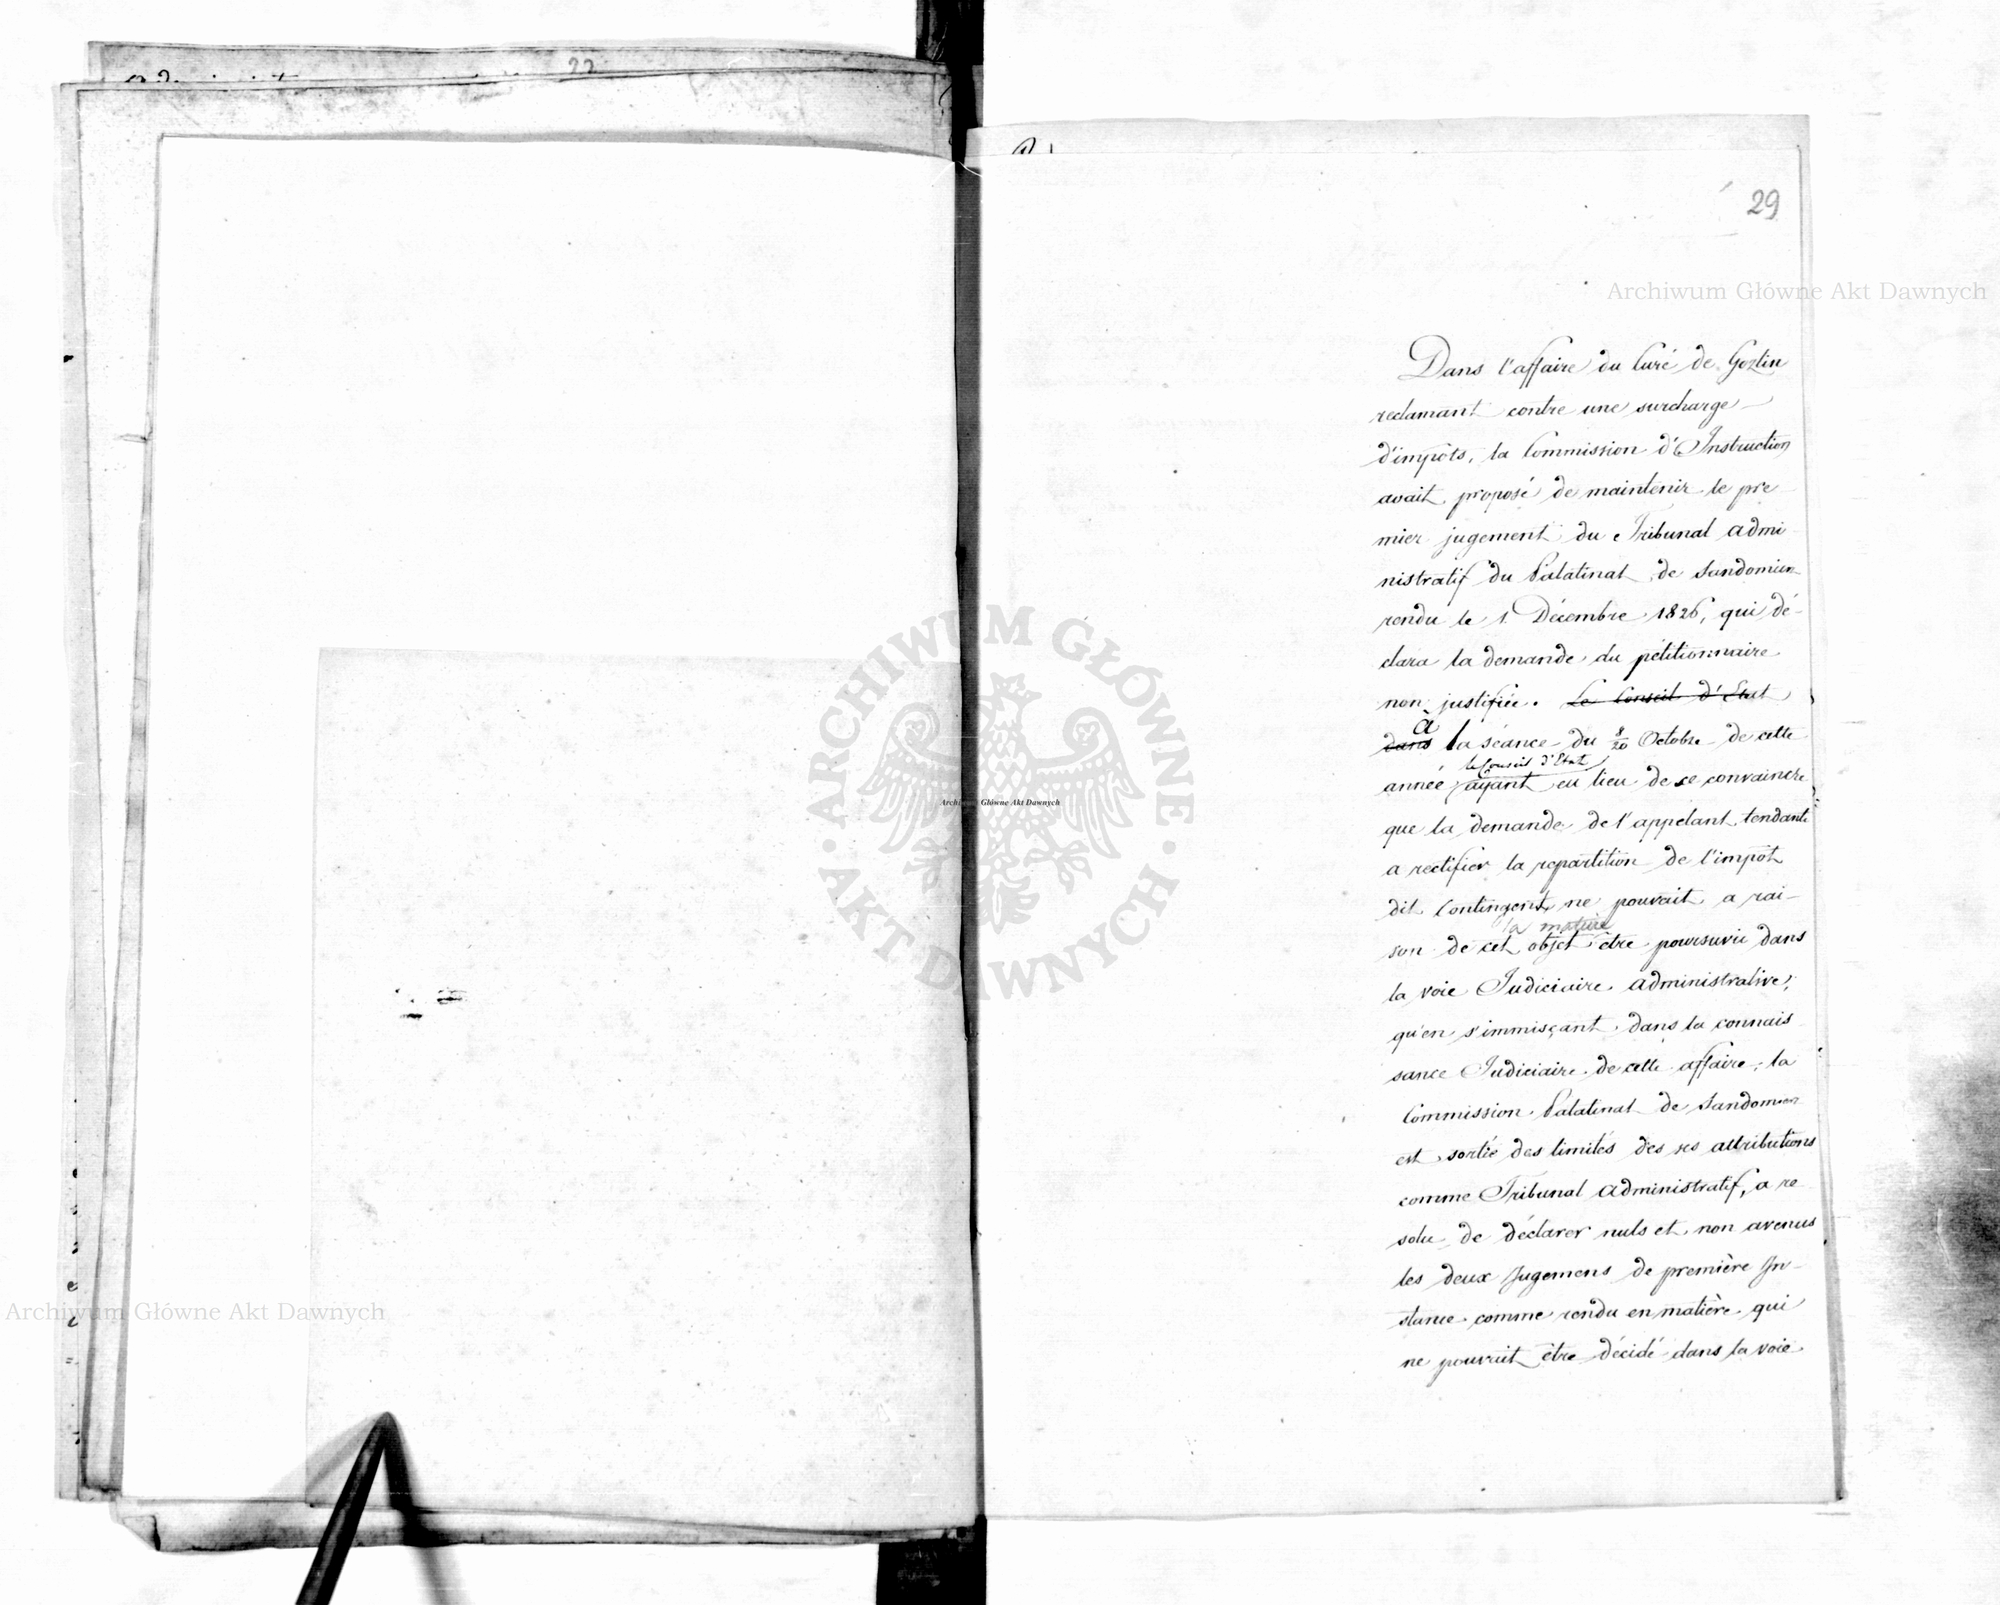 22
29
Dans l'affaire du Curé de Gozlin
reclamant contre une surcharge
d'impôts, la Commission d'Instruction
avait proposé de maintenir le pre
mier jugement du Tribunal admi
nistratif du Palatinat de Sandomir
rendu le 1 Décembre 1826, qui dé-
clara la demande du pétitionnaire
non justifiée. Le Conseil d'Etat
à
dans la séance du 8/20 Octobre de cette
le Conseil d'Etat
année ayant eu lieu de se convaincre
que la demande de l'appelant tendante
a rectifier la repartition de l'impôt
dit Contingent, ne pouvait a rai-
la matière
son de cet objet être poursuvie dans
la voie Judiciaire administrative;
qu'en s'immisçant dans la connais
sance Judiciaire de cette affaire; la
Commission Palatinat de Sandomir
est sortie des limités des ses attributions
comme Tribunal administratif, a re
solu de déclarer nuls et non avenus
les deux Jugemens de première In-
stance comme rendu en matière qui
ne pouvait être décidé dans la voie
Archiwum Główne Akt Dawnych
Archiwum Główne Akt Dawnych
Archiwum Główne Akt Dawnych
ARCHIWUM GŁÓWNE AKT DAWNYCH